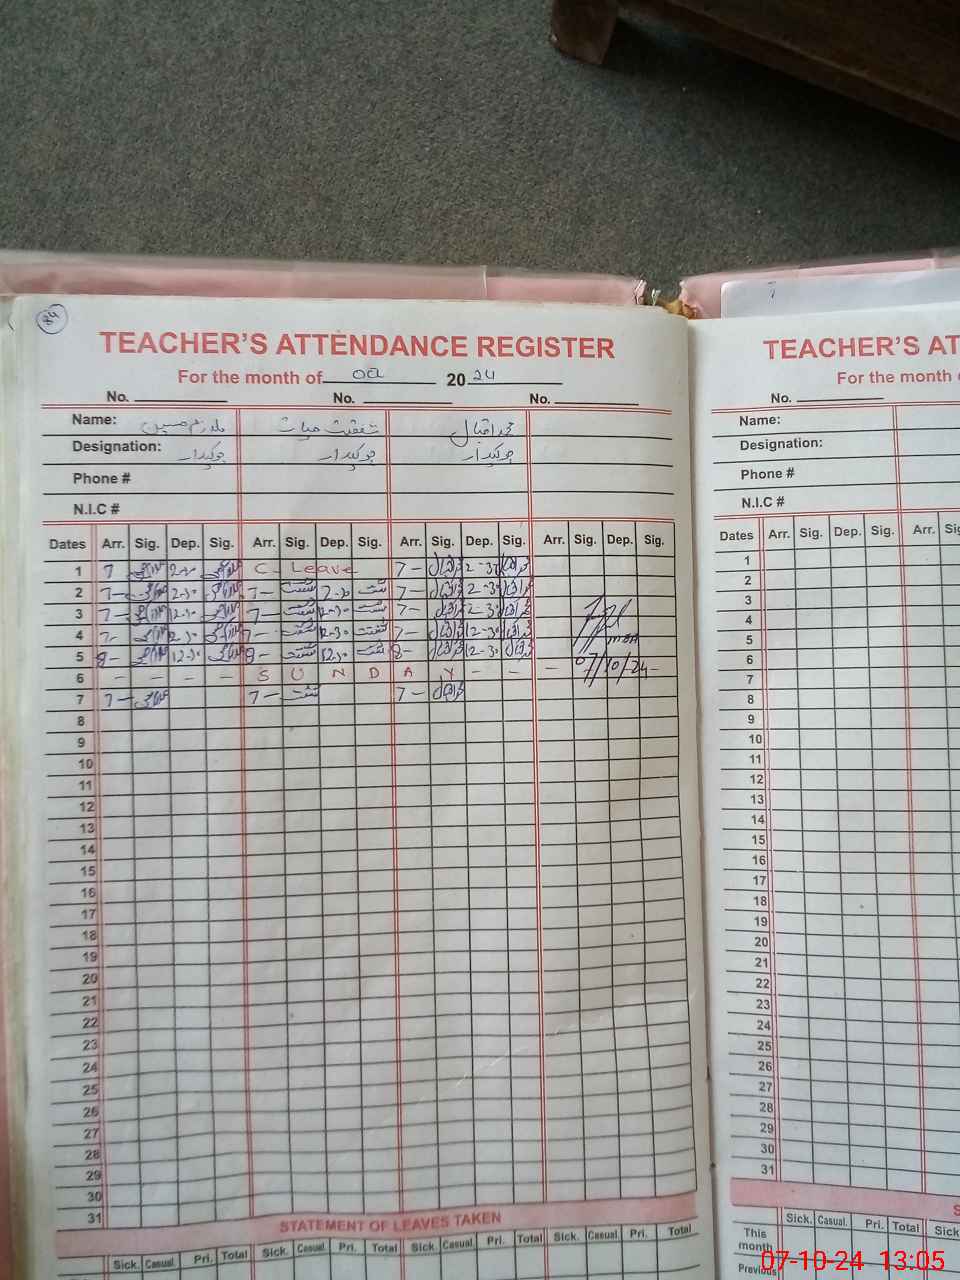 84
TEACHER'S ATTENDANCE REGISTER
For the month of Oct 2024
No. No. No.
Name: شفقت حیات محمد اقبال
Designation: چوکیدار چوکیدار چوکیدار
Phone #
N.I.C #
Dates Arr. Sig. Dep. Sig. Arr. Sig. Dep. Sig. Arr. Sig. Dep. Sig. Arr. Sig. Dep. Sig.
1 7 C. Leave 7 - 2-30
2 7 - 12-30 7 - 7 - 2-30
3 7 - 12-30 7 - 12-30 7 - 2-30
4 7 - 2-30 7 - 12-30 7 - 12-30
5 8 - 12-30 8 - 12-30 8 - 12-30
6 - - - - S U N D A Y - - - 07/10/24
7 7 - 7 - 7 -
8
9
10
11
12
13
14
15
16
17
18
19
20
21
22
23
24
25
26
27
28
29
30
31
STATEMENT OF LEAVES TAKEN
Sick. Casual. Pri. Total Sick. Casual. Pri. Total Sick. Casual. Pri. Total Sick. Casual. Pri. Total
TEACHER'S AT
For the month
No.
Name:
Designation:
Phone #
N.I.C #
Dates Arr. Sig. Dep. Sig. Arr. Sig
1
2
3
4
5
6
7
8
9
10
11
12
13
14
15
16
17
18
19
20
21
22
23
24
25
26
27
28
29
30
31
S
Sick. Casual. Pri. Total Sick.
This month
Previous
07-10-24 13:05